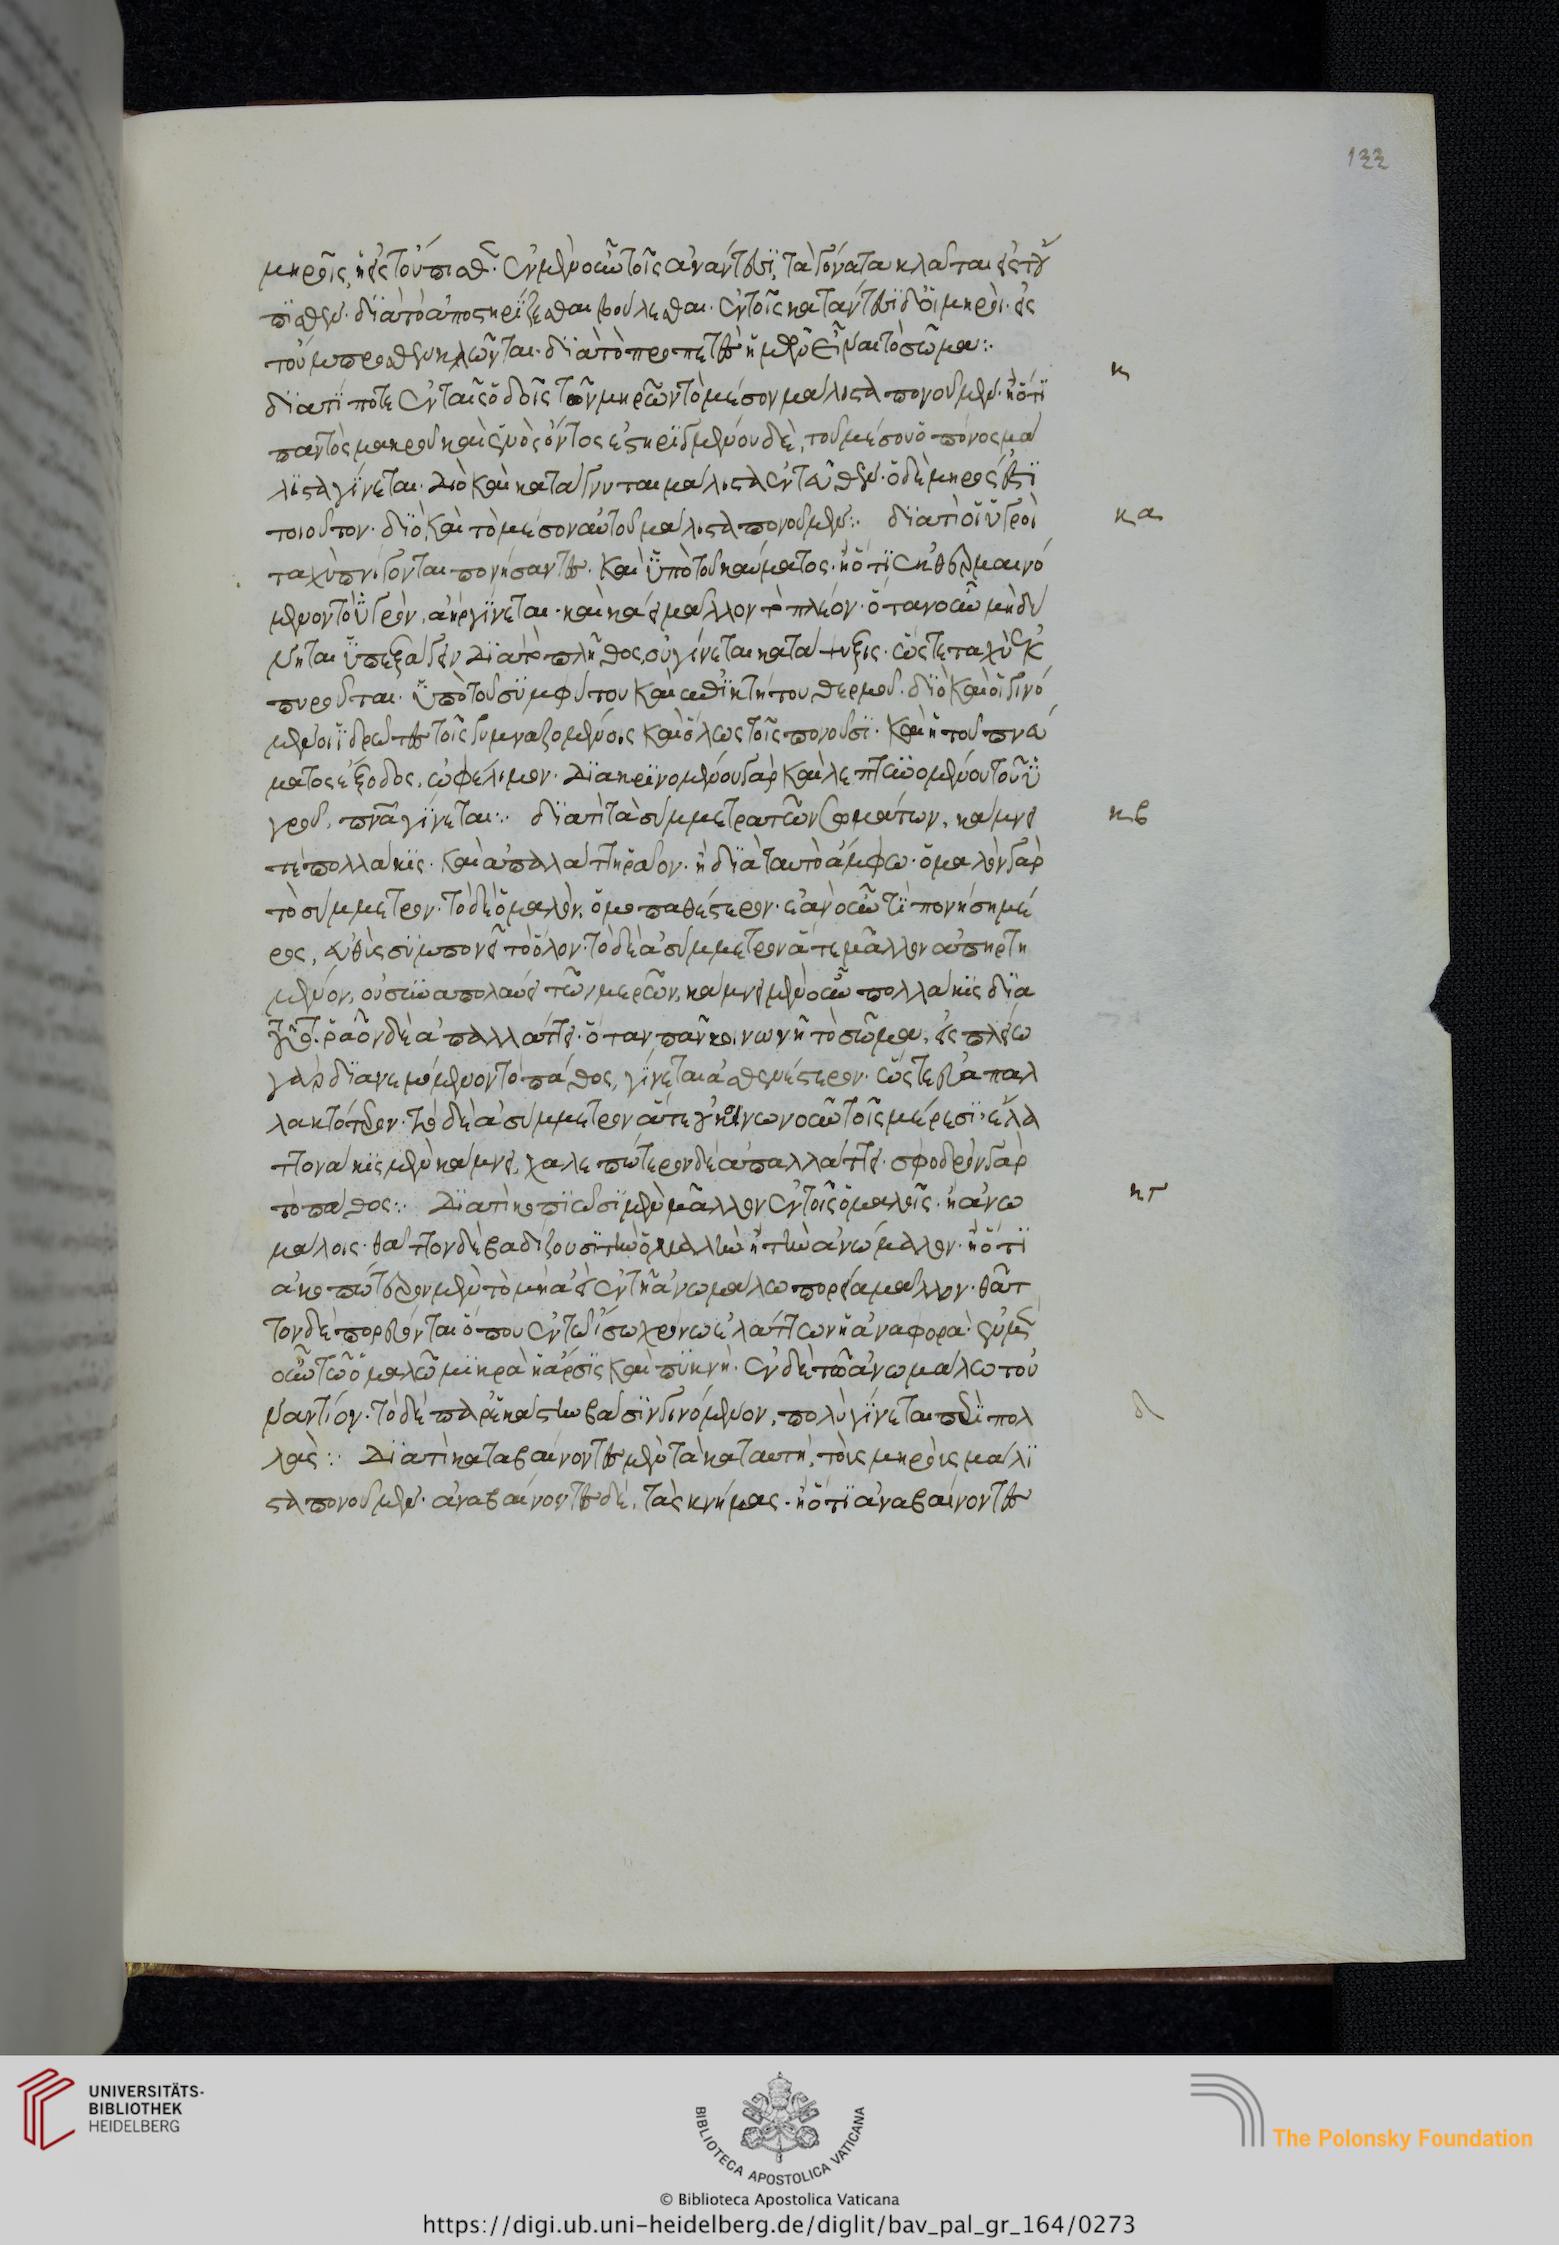 μηροῖς, ἢ εἰς τοὔπισθεν· ἐν μὲν οὖν τοῖς ἀνάντεσι, τὰ γόνατα κλᾶται εἰς τοὔ
πισθεν· διὰ τὸ ἀποστηρίζεσθαι βούλεσθαι· ἐν τοῖς κατάντεσι δ' οἱ μηροὶ· εἰς
τοὔμπροσθεν κλῶνται· διὰ τὸ προπετὲς ἡμῶν εἶναι τὸ σῶμα:
κ
διατί ποτε ἐν ταῖς ὁδοῖς τῶν μηρῶν τὸ μέσον μάλιστα πονοῦμεν· ἢ ὅτι
παντὸς μακροῦ καὶ ἑνὸς ὄντος ἐστηριγμένου δὲ, τοῦ μέσου ὁ πόνος μά
λιστα γίνεται· διὸ καὶ κατάγνυται μάλιστα ἐντεῦθεν· ὁ δὲ μηρός ἐστι
τοιοῦτον· διὸ καὶ τὸ μέσον αὐτοῦ μάλιστα πονοῦμεν: διατί οἱ ὑγροὶ
κα
ταχὺ πνίγονται πονήσαντες· καὶ ὑπὸ τοῦ καύματος· ἢ ὅτι ἐκθερμαινό
μενον τὸ ὑγρὸν, ἀὴρ γίνεται· καὶ καίει μᾶλλον τὸ πλεῖον· ὅταν οὖν μὴ δύ
νηται ὑπεξάγειν διὰ τὸ πλῆθος, οὐ γίνεται κατάψυξις· ὥστε ταχὺ ἐκ
πυροῦται· ὑπὸ τοῦ συμφύτου καὶ θερμοῦ· διὸ καὶ οἱ γινό
μενοι ἱδρῶτες τοῖς γυμναζομένοις καὶ ὅλως τοῖς πονοῦσι· καὶ ἡ τοῦ πνεύ
ματος ἔξοδος, ὠφέλιμον· διακρινομένου γὰρ καὶ λεπτυνομένου τοῦ ὑ
γροῦ, πνα γίνεται: διατί τὰ σύμμετρα τῶν σωμάτων, κάμνει
κβ
τε πολλάκις· καὶ ἀπαλλάττει ῥᾷον· ἢ διὰ ταυτὸ ἄμφω· ὁμαλὸν γὰρ
τὸ σύμμετρον· τὸ δὲ ὁμαλὸν, ὁμοπαθέστερον· ἐὰν οὖν τι πονήσῃ μέ
ρος, εὐθὺς συμπονεῖ τὸ ὅλον· τὸ δὲ ἀσύμμετρον ἅτε μᾶλλον ἀπηρτη
μένον, οὐ συναπολαύει τῶν μερῶν, κάμνει μὲν οὖν πολλάκις διὰ
τοῦτο· ῥᾷον δὲ ἀπαλλάττει· ὅταν πᾶν κοινωνῇ τὸ σῶμα, εἰς πλείω
γὰρ διανεμόμενον τὸ πάθος, γίνεται ἀσθενέστερον· ὥστε εὐαπαλ
λακτότερον· τὸ δὲ ἀσύμμετρον ἅτε οὐ κοινωνοῦν τοῖς μέρεσι· ἐλα
ττονάκις μὲν κάμνει, χαλεπώτερον δὲ ἀπαλλάττει· σφοδρὸν γὰρ
τὸ πάθος: διατί κοπιῶσι μὲν μᾶλλον ἐν τοῖς ὁμαλοῖς· ἢ ἀνω
κγ
μάλοις· θᾶττον δὲ βαδίζουσι τὴν ὁμαλὴν ἢ τὴν ἀνώμαλον· ἢ ὅτι
ἀκοπώτερον μὲν τὸ μὴ ἀεὶ ἐν τῇ ἀνωμάλω πορεία μᾶλλον· θᾶτ
τον δὲ πορεύονται ὅπου ἐν τῶ ἴσω χρόνω ἐλάττων ἡ ἀναφορά· ἐν μὲν
οὖν τῷ ὁμαλῷ μικρὰ ἡ ἄρσις καὶ πυκνή· ἐν δὲ τῷ ἀνωμάλω τοὐ
ναντίον· τὸ δὲ παρ' ἑκάστην βάσιν γινόμενον, πολὺ γίνεται ἐπὶ πολ
λὰς: διατί καταβαίνοντες μὲν τὰ κατάντη, τοὺς μηροὺς μάλι
στα πονοῦμεν· ἀναβαίνοντες δὲ, τὰς κνήμας· ἢ ὅτι ἀναβαίνοντες
UNIVERSITÄTS-
BIBLIOTHEK
HEIDELBERG
BIBLIOTECA APOSTOLICA VATICANA
The Polonsky Foundation
© Biblioteca Apostolica Vaticana
https://digi.ub.uni-heidelberg.de/diglit/bav_pal_gr_164/0273